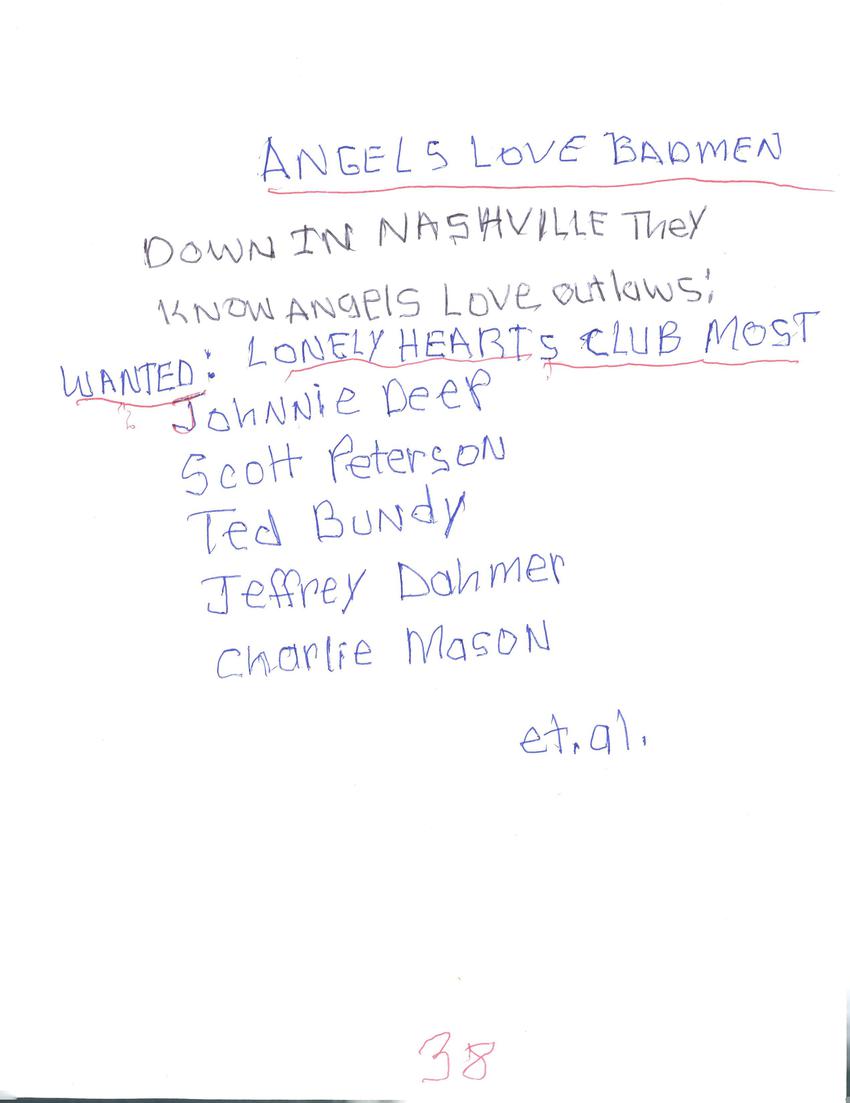 ANGELS LOVE BADMEN
DOWN IN NASHVILLE They
KNOW ANgelS LOVE outlaws;
WANTED: LONELY HEARTS CLUB MOST
JohNNie Deep
Scott PetersoN
Ted BUNdy
Jeffrey Dahmer
Charlie MasoN
et.al.
38